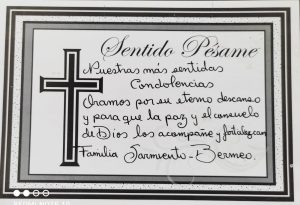 Sentido Pésame
Nuestras más sentidas
Condolencias
Oramos por su eterno descanso
y para que la paz y el consuelo
de Dios los acompañe y fortalezcan
Familia Sarmiento - Bermeo.